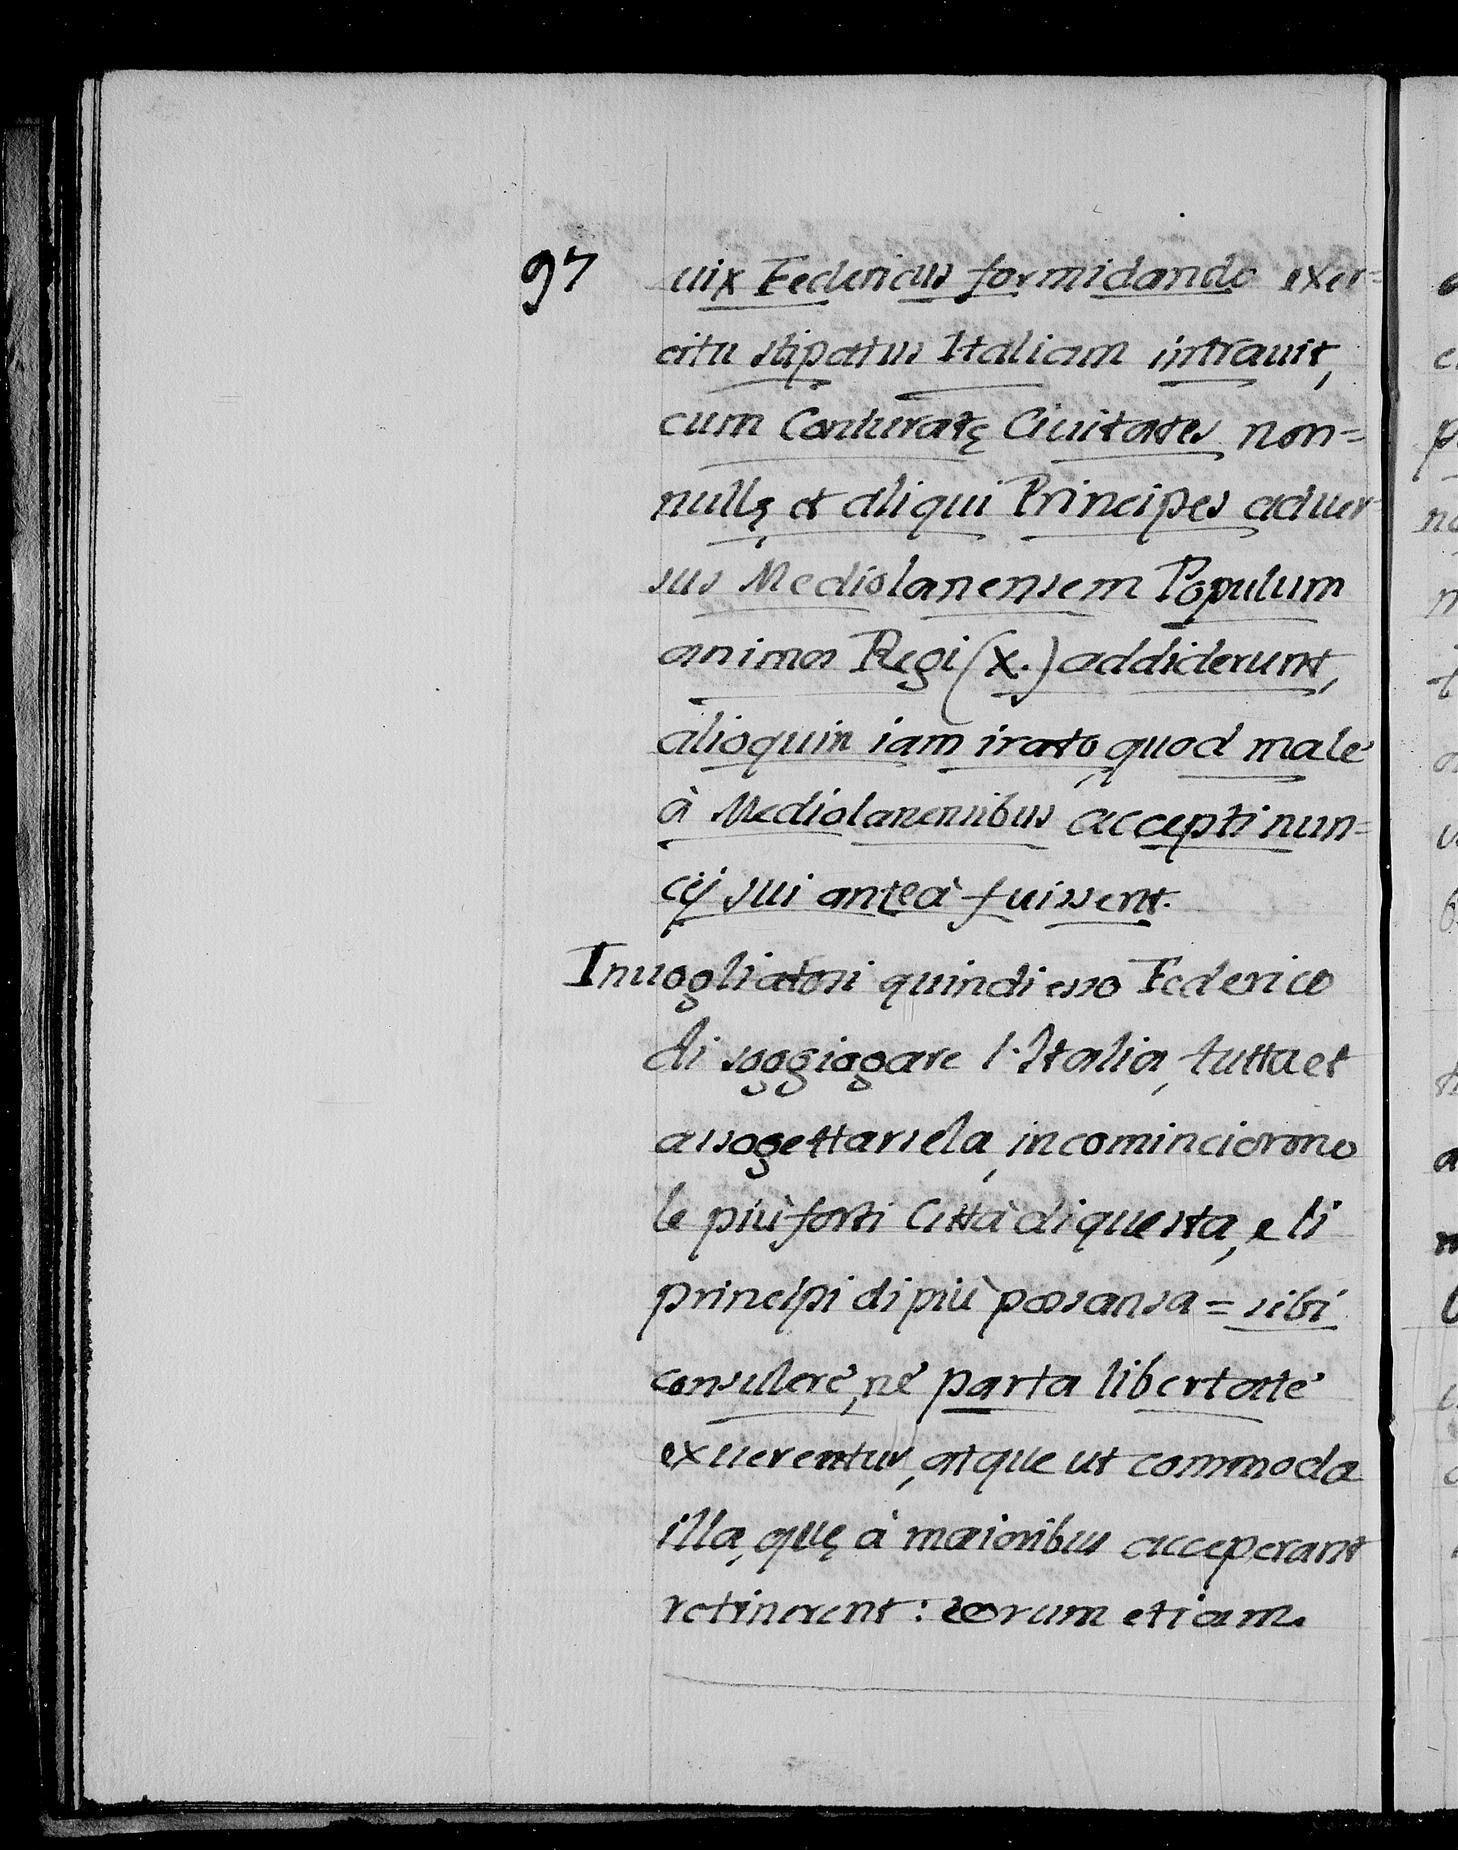 97 uix Federicus formidando exer=
citu stipatus Italiam intrauit,
cum Coniuratę Ciuitates non=
nullę et aliqui Principes aduer=
sus Mediolanensem Populum
animos Regi (X.) addiderunt,
alioquin iam irato, quod malè
à Mediolanensibus accepti nun=
cij sui anteà fuissent.
Inuogliatosi quindi esso Federico
di soggiogare l'Italia, tutta et
assogettarsela, incominciorono
le più forti Città di questa, e li
principi di più possansa = sibi
consulere, né parta libertate
exuerentur, atque ut commoda
illa, quę à maioribus acceperant
retinerent: eorum etiam.